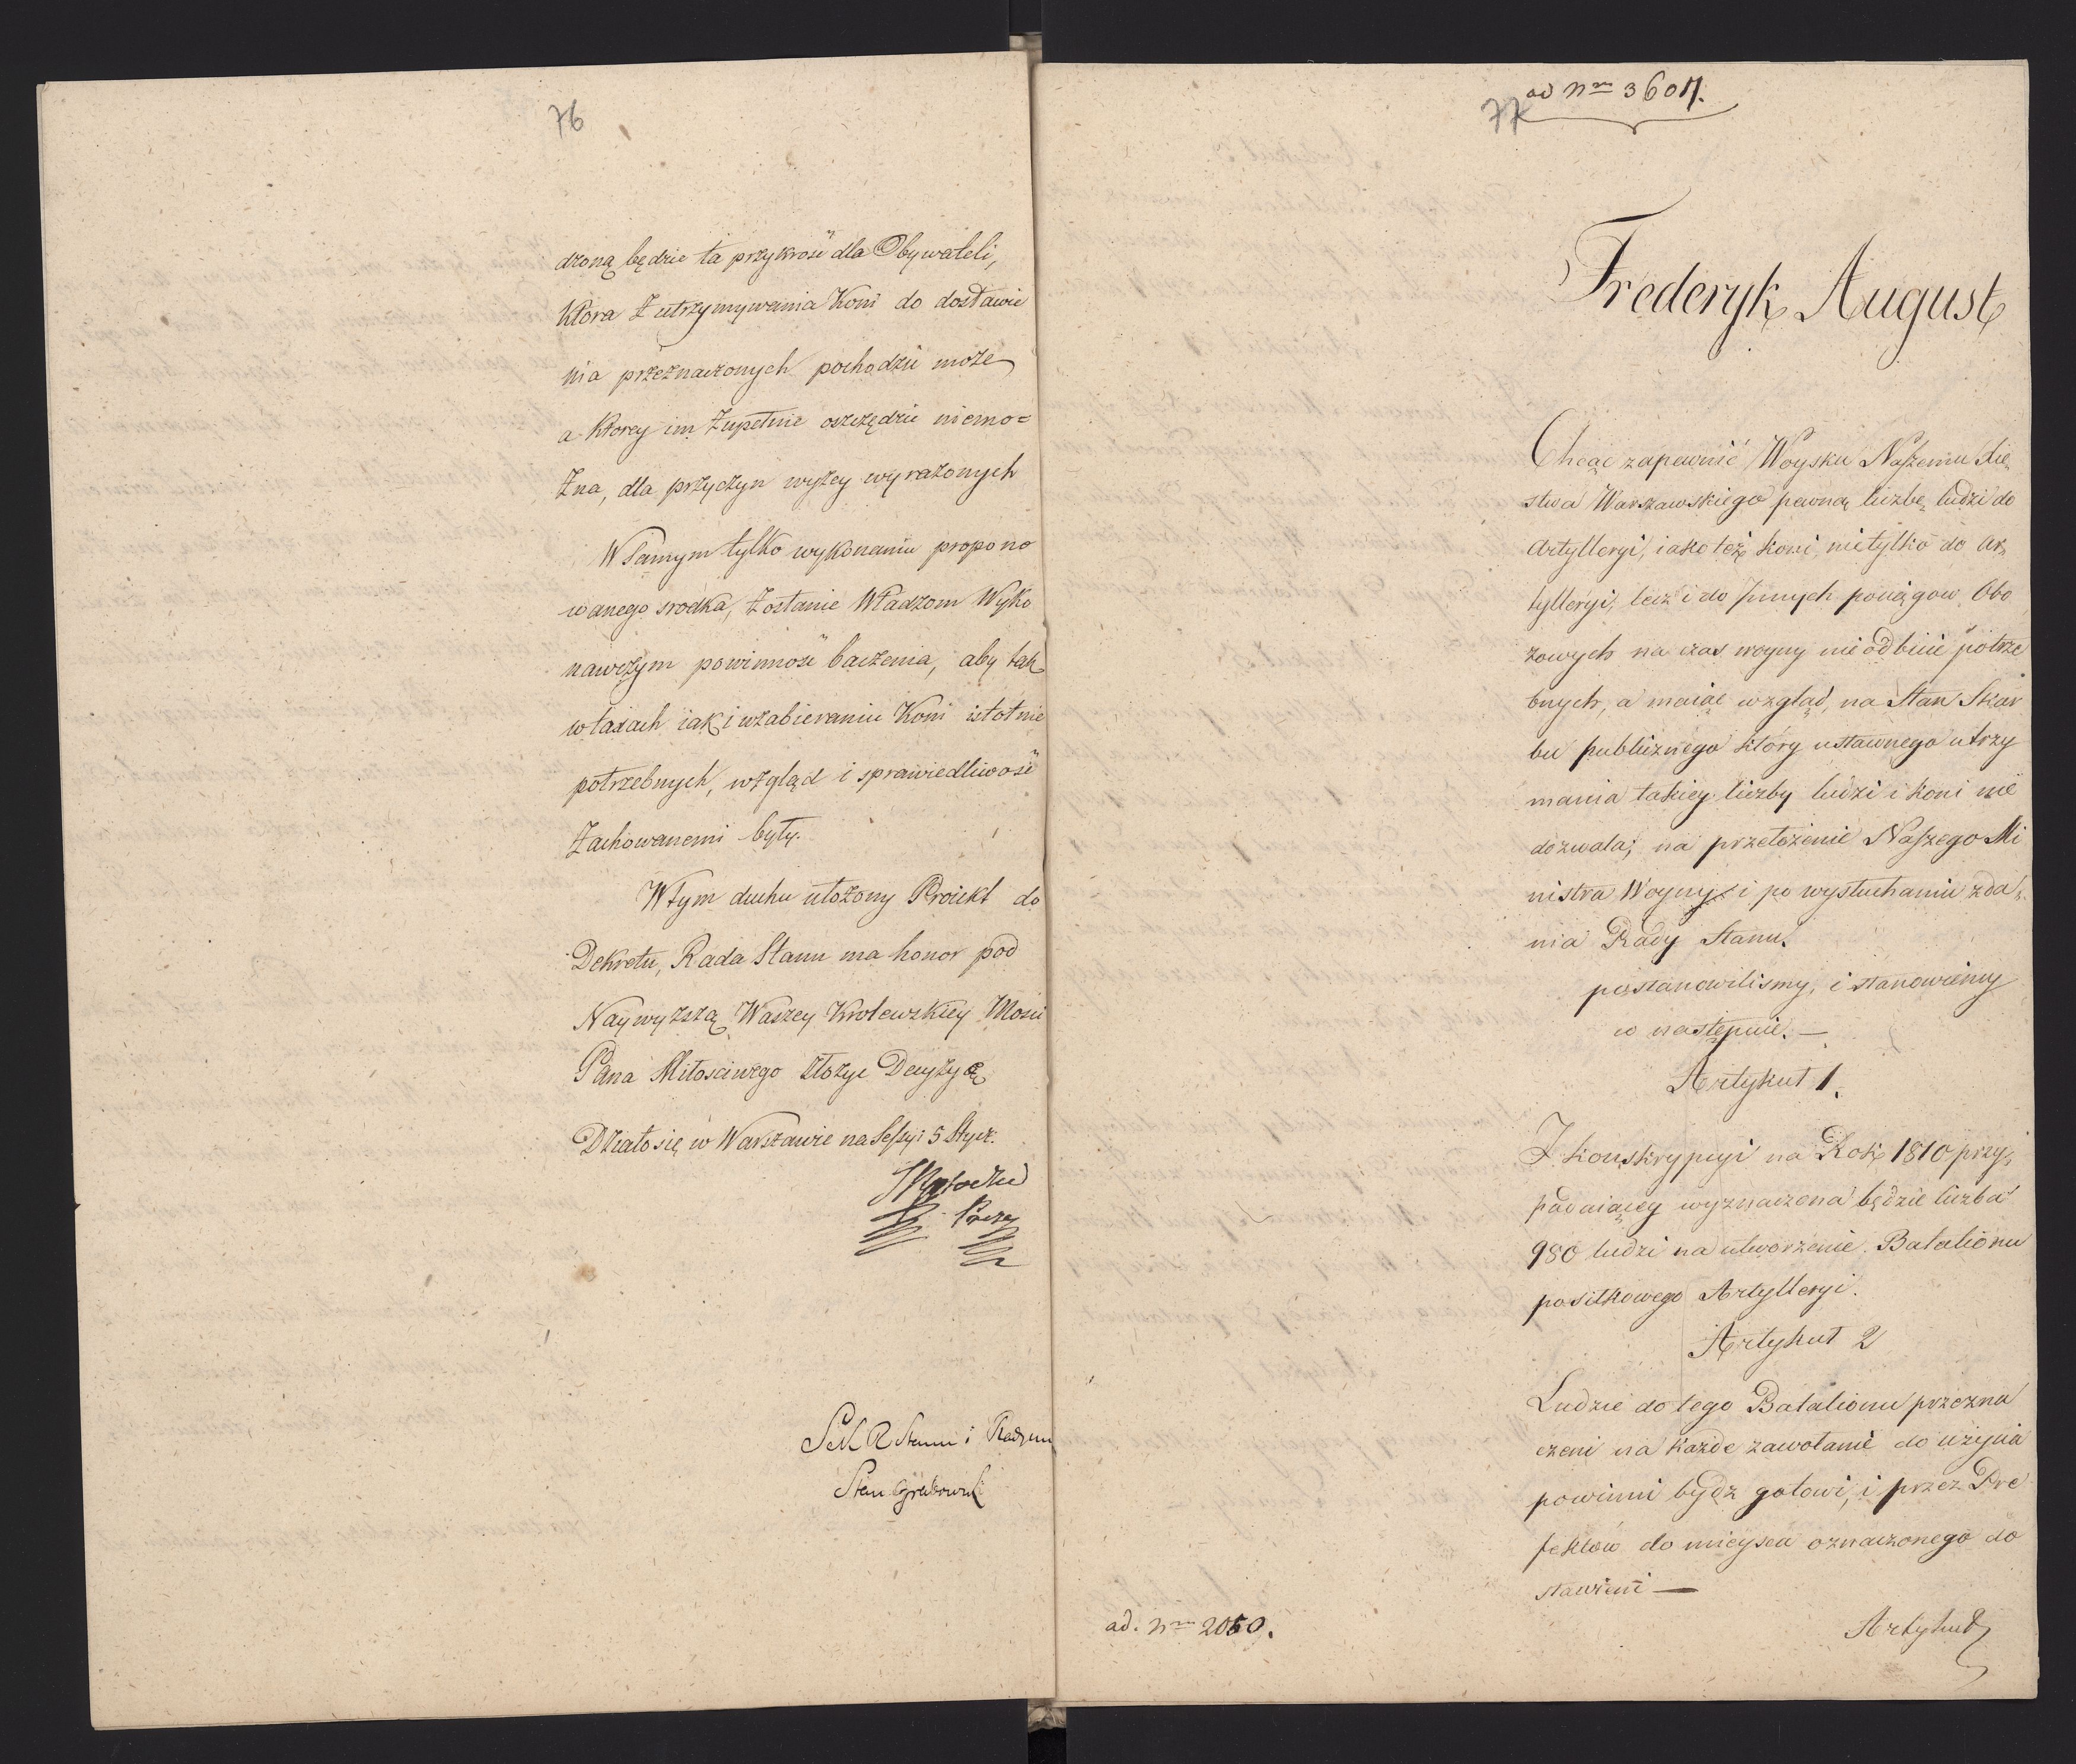 76
dzoną będzie ta przykrość dla Obywateli,
która z utrzymywania Koni do dostawie
nia przeznaczonych pochodzić może
a którey im zupełnie oszczędzić niemo=
żna, dla przyczyn wyżey wyrażonych
W samym tylko wykonaniu propono
wanego srodka, zostanie Władzom Wyko
nawczym powinność baczenia, aby tak
w taxach iak i w zabieraniu Koni istotnie
potrzebnych, wzgląd i sprawiedliwość
zachowanemi były.
W tym duchu ułożony Proiekt do
Dekretu, Rada Stanu ma honor pod
Naywyższą Waszey Krolewskiey Mosci
Pana Miłosciwego złożyc Decyzyą
Działo się w Warszawie na Sessyi 5 Stycz.
Prezes
Stanu i
Stan Grabowski
77
ad Nrm 3607.
Frederyk August
Chcąc zapewnić Woysku Naszemu Xię
stwa Warszawskiego pewną liczbę ludzi do
Artylleryi, iako też koni, nietylko do Ar
tylleryi, lecz i do Innych pociągow Obo
zowych na czas woyny nieodbicie potrze
bnych, a maiąc wzgląd, na Stan Skar
bu publicznego który ustawnego utrzy
mania takiey liczby ludzi i koni nie
dozwala; na przełożenie Naszego Mi
nistra Woyny i po wysłuchaniu zda
nia Rady Stanu.
postanowilismy, i stanowiemy
co następuie. —
Artykuł 1.
Z konskrypcyi na Rok 1810 przy
padaiącey wyznaczona będzie liczba
980 ludzi na utworzenie Batalionu
posiłkowego Artylleryi.
Artykuł 2
Ludzie do tego Batalionu przezna
czeni na każde zawołanie do użycia
powinni bydz gotowi, i przez Pre
fektów do mieysca oznaczonego do
stawieni —
Artykuł
ad. Nrm 2050.